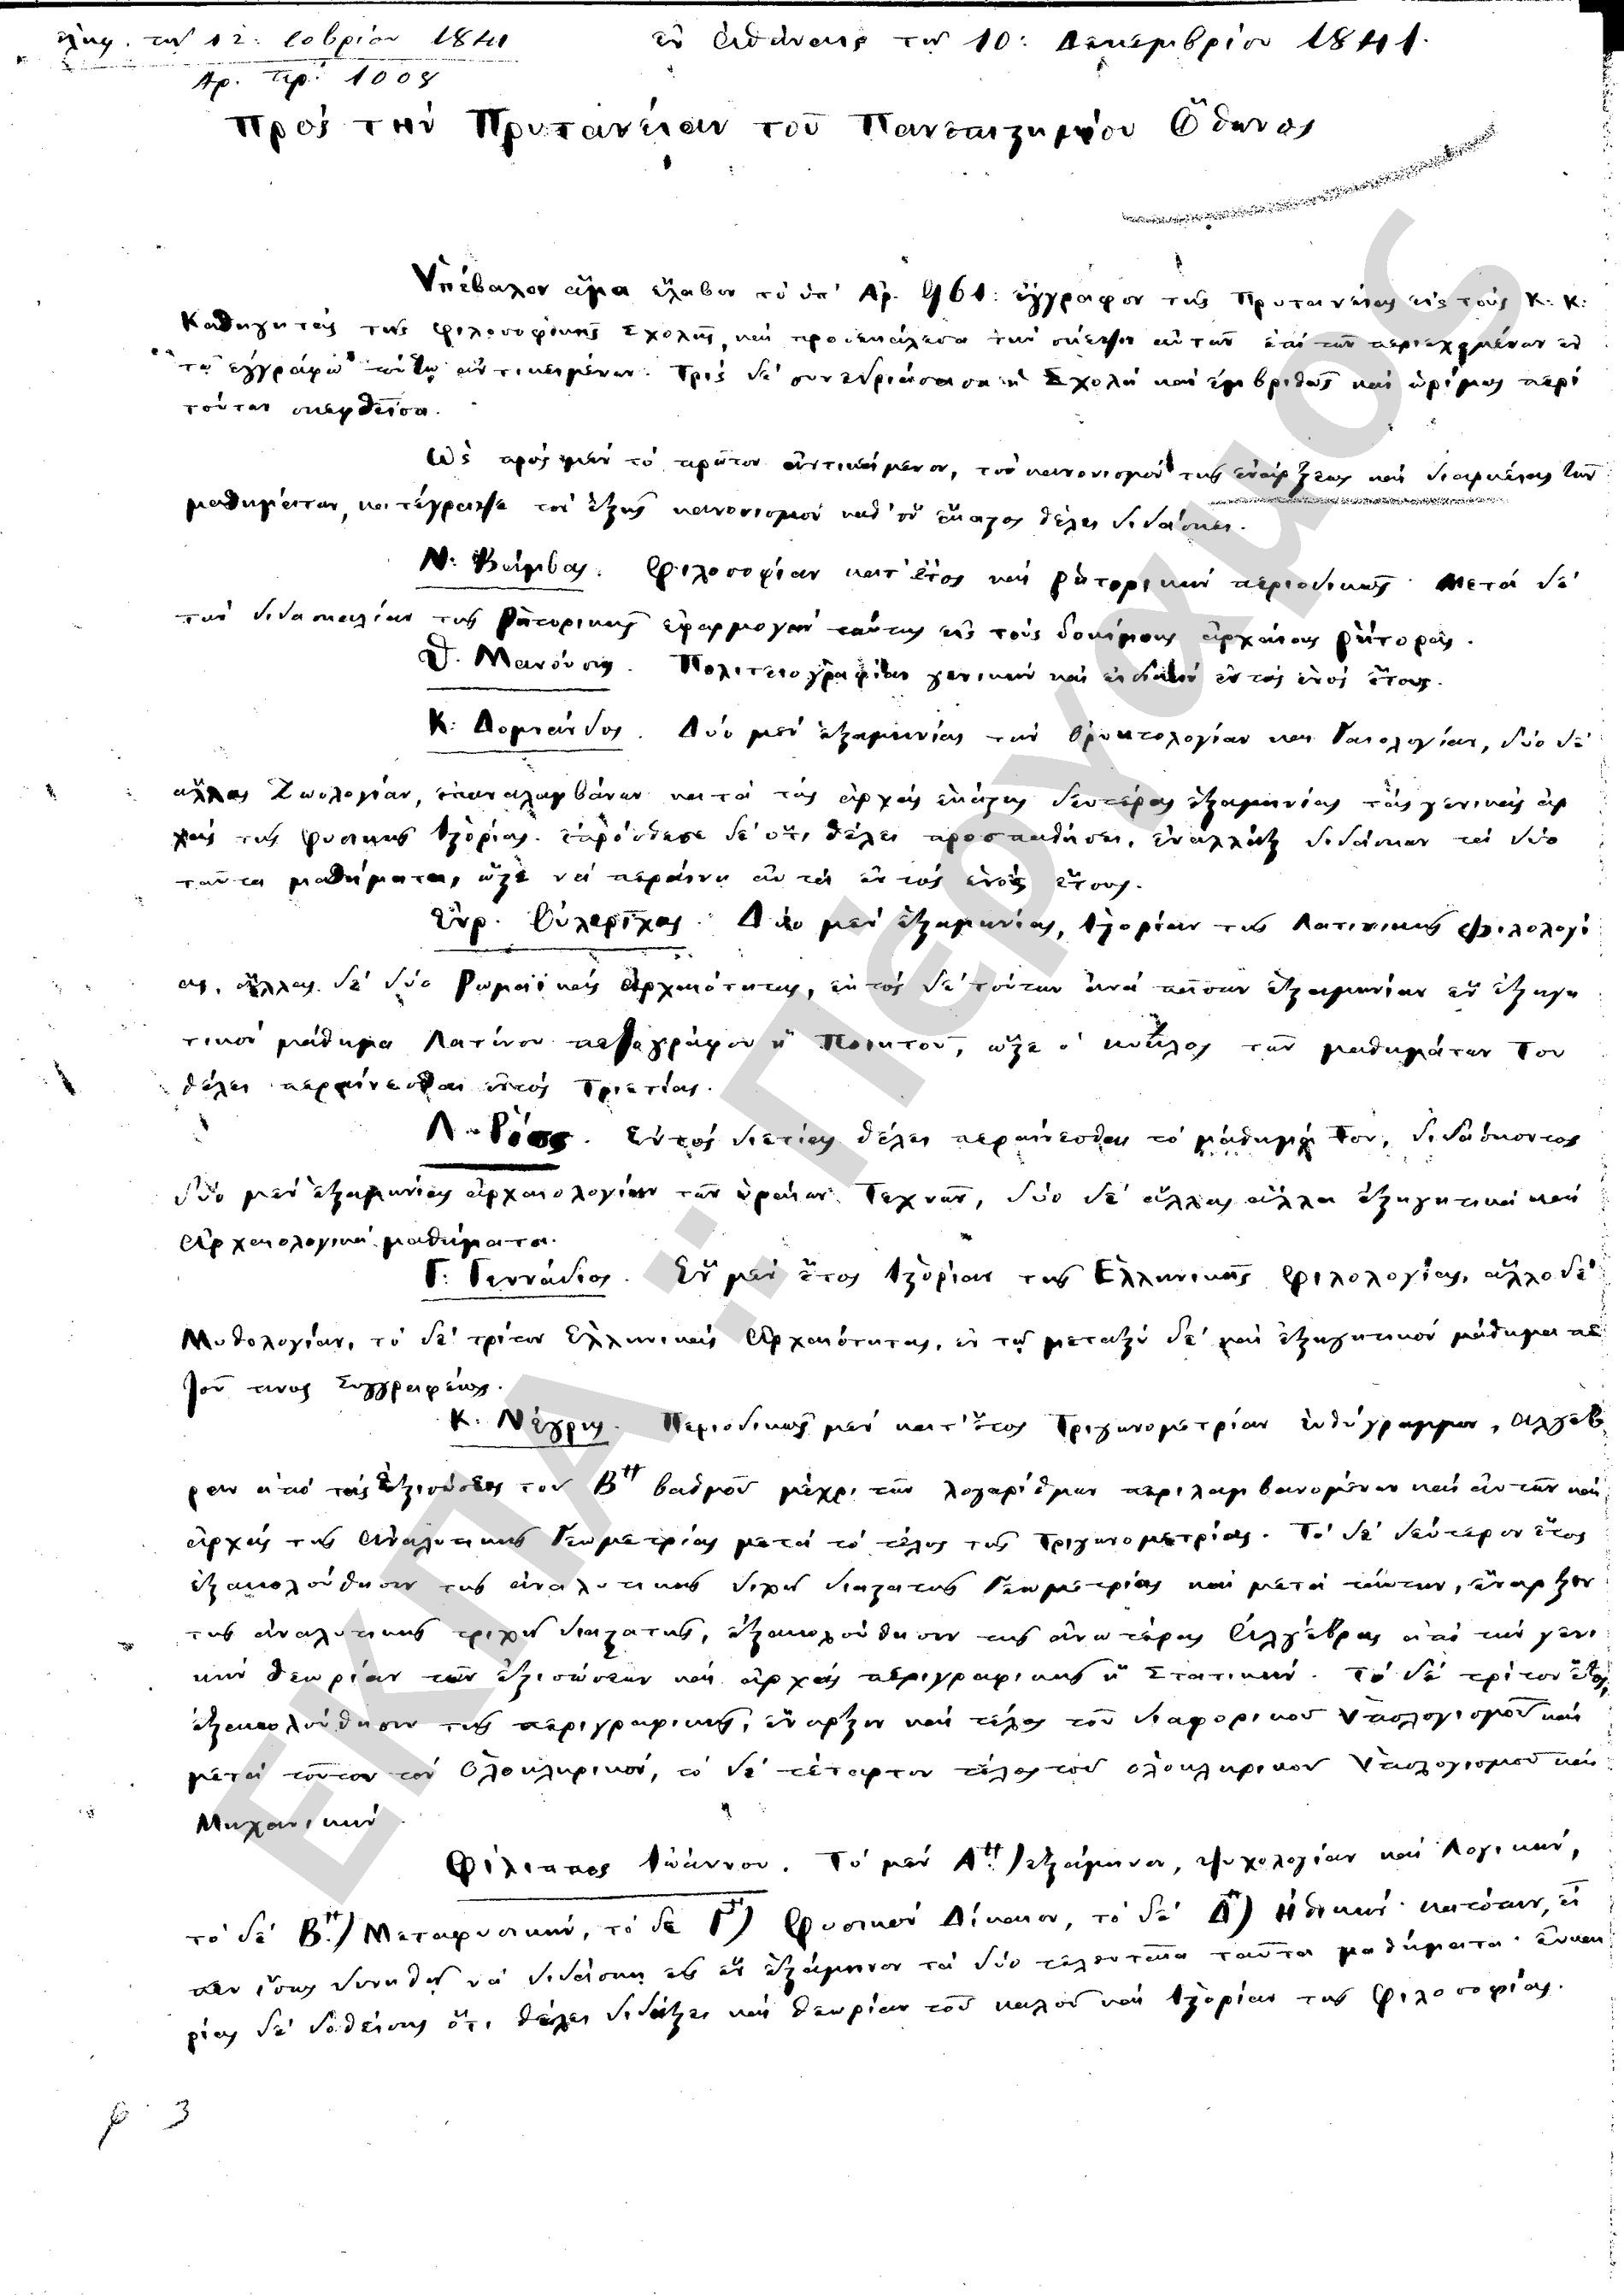 ἐλήφ. τῇ 12: 10βρίου 1841
ἐν Ἀθήναις τῇ 10: Δεκεμβρίου 1841.
Ἀρ. πρ. 1008
Πρὸς τὴν Πρυτανείαν τοῦ Πανεπιστημίου Ὄθωνος
Ὑπέβαλον ἅμα ἔλαβον τὸ ὑπ' Ἀρ. 961: ἔγγραφον τῆς Πρυτανείας εἰς τοὺς Κ. Κ.
Καθηγητὰς τῆς φιλοσοφικῆς Σχολῆς, καὶ προσεκάλεσα τὴν σκέψιν αὐτῶν ἐπὶ τῶν περιεχομένων ἐν
τῷ ἐγγράφῳ τούτῳ ἀντικειμένων. Τρὶς δὲ συνεδριάσασα ἡ Σχολὴ καὶ ἐμβριθῶς καὶ ὡρίμως περὶ
τούτων σκεφθεῖσα.
Ὡς πρὸς μὲν τὸ πρῶτον ἀντικείμενον, τὸν κανονισμὸν τῆς ἐνάρξεως καὶ διαρκείας τῶν
μαθημάτων, κατέγραψε τὸν ἑξῆς κανονισμὸν καθ' ὃν ἕκαστος θέλει διδάσκει.
Ν. Βάμβας. Φιλοσοφίαν κατ' ἔτος καὶ ῥητορικὴν περιοδικῶς. Μετὰ δὲ
τὴν διδασκαλίαν τῆς ῥητορικῆς ἐφαρμογὴν ταύτης εἰς τοὺς δοκίμους ἀρχαίους ῥήτορας.
Θ. Μανούσης. Πολιτειογραφίαν γενικὴν καὶ εἰδικὴν ἐντὸς ἑνὸς ἔτους.
Κ: Δομνάνδος. Δύο μὲν ἑξαμηνίας τὴν Ὀρυκτολογίαν καὶ Γαιολογίαν, δύο δὲ
ἄλλας Ζωολογίαν, ἐπαναλαμβάνων κατὰ τὰς ἀρχὰς ἑκάστης δευτέρας ἑξαμηνίας τὰς γενικὰς ἀρ
χὰς τῆς φυσικῆς Ἱστορίας. ἐπρόσθεσε δὲ ὅτι θέλει προσπαθήσει, ἐναλλὰξ διδάσκων τὰ δύο
ταῦτα μαθήματα, ὥστε νὰ περαίνῃ αὐτὰ ἐντὸς ἑνὸς ἔτους.
Ἑρρ. Οὐλερῖχος. Δύο μὲν ἑξαμηνίας, Ἱστορίαν τῆς Λατινικῆς φιλολογί
ας, ἄλλας δὲ δύο Ῥωμαϊκὰς Ἀρχαιότητας, ἐκτὸς δὲ τούτων ἀνὰ πᾶσαν ἑξαμηνίαν ἓν ἐξηγη
τικὸν μάθημα Λατίνου πεζογράφου ἢ Ποιητοῦ, ὥστε ὁ κύκλος τῶν μαθημάτων του
θέλει περαίνεσθαι ἐντὸς Τριετίας.
Λ. Ῥόσς. Ἐντὸς διετίας θέλει περαίνεσθαι τὸ μάθημά του, διδάσκοντος
δύο μὲν ἑξαμηνίας ἀρχαιολογίαν τῶν ὡραίων Τεχνῶν, δύο δὲ ἄλλας ἄλλα ἐξηγητικὰ καὶ
Ἀρχαιολογικὰ μαθήματα.
Γ: Γεννάδιος. Ἓν μὲν ἔτος Ἱστορίαν τῆς Ἑλληνικῆς φιλολογίας, ἄλλο δὲ
Μυθολογίαν, τὸ δὲ τρίτον Ἑλληνικὰς Ἀρχαιότητας, ἐν τῷ μεταξὺ δὲ καὶ ἐξηγητικὸν μάθημα πε
ζοῦ τινος Συγγραφέως.
Κ. Νέγρης. Περιοδικῶς μὲν κατ' ἔτος Τριγωνομετρίαν εὐθύγραμμον, Ἄλγεβ
ραν ἀπὸ τὰς ἐξισώσεις τοῦ Βου βαθμοῦ μέχρι τῶν λογαρίθμων περιλαμβανομένων καὶ αὐτῶν καὶ
ἀρχὰς τῆς Ἀναλυτικῆς Γεωμετρίας μετὰ τὸ τέλος τῆς Τριγωνομετρίας. Τὸ δὲ δεύτερον ἔτος
ἐξακολούθησιν τῆς ἀναλυτικῆς διχῆ διαστατῆς Γεωμετρίας καὶ μετὰ ταύτην, ἔναρξιν
τῆς ἀναλυτικῆς τριχῆ διαστατῆς, ἐξακολούθησιν τῆς ἀνωτέρας Ἀλγέβρας ἀπὸ τὴν γενι
κὴν θεωρίαν τῶν ἐξισώσεων καὶ ἀρχὰς περιγραφικῆς ἢ Στατικήν. Τὸ δὲ τρίτον ἔτος,
ἐξακολούθησιν τῆς περιγραφικῆς, ἔναρξιν καὶ τέλος τοῦ διαφορικοῦ Ὑπολογισμοῦ καὶ
μετὰ τοῦτον τὸν Ὁλοκληρικόν, τὸ δὲ τέταρτον τέλος τοῦ ὁλοκληρικοῦ Ὑπολογισμοῦ καὶ
Μηχανικήν.
Φίλιππος Ἰωάννου. Τὸ μὲν Αον) ἑξάμηνον, ψυχολογίαν καὶ Λογικήν,
τὸ δὲ Βον) Μεταφυσικήν, τὸ δὲ Γον) Φυσικὸν Δίκαιον, τὸ δὲ Δον) Ἠθικήν· κατόπιν, εἰ
περ ἴσως δυνηθῇ νὰ διδάσκῃ εἰς ἓν ἑξάμηνον τὰ δύο τελευταῖα ταῦτα μαθήματα· εὐκαι
ρίας δὲ δοθείσης ὅτι θέλει διδάξει καὶ θεωρίαν τοῦ καλοῦ καὶ Ἱστορίαν τῆς Φιλοσοφίας.
φ 3
ΕΚΠΑ.:Πέργαμος